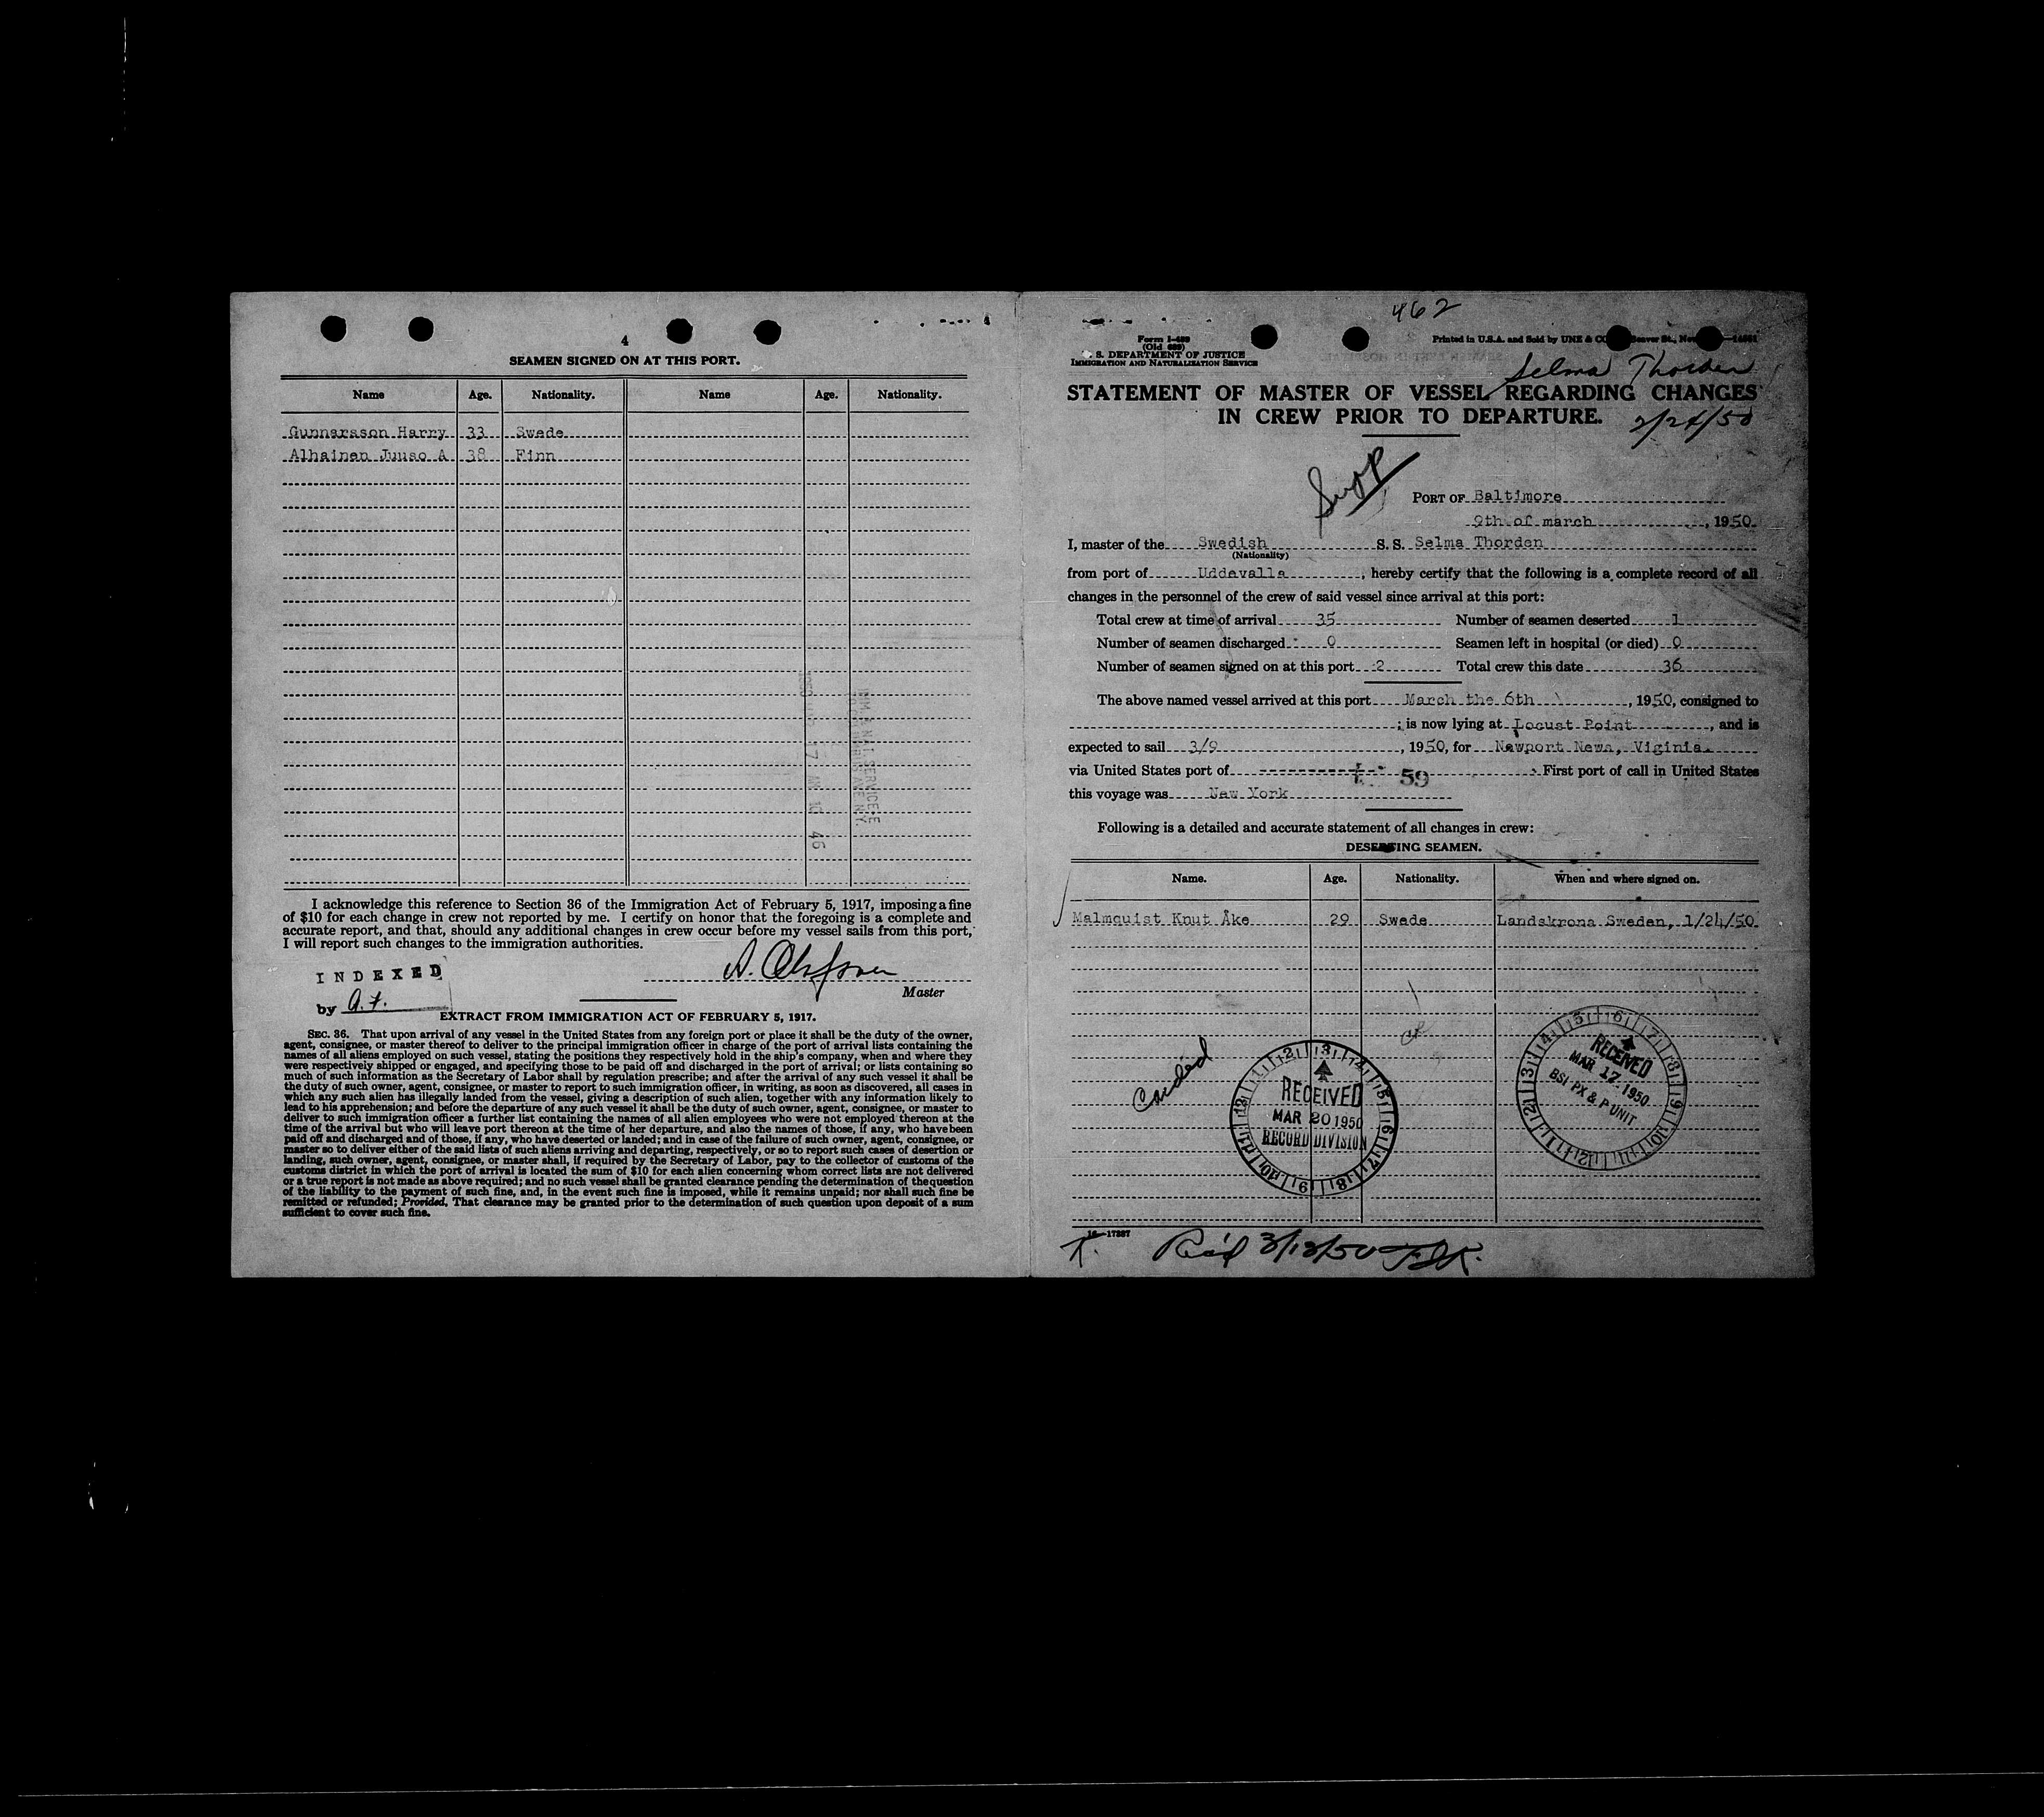 4
SEAMEN SIGNED ON AT THIS PORT.
Name Age. Nationality. Name Age. Nationality.
Gunnarsson Harry 33 Swede
Alhainen Juuso A 38 Finn
I acknowledge this reference to Section 36 of the Immigration Act of February 5, 1917, imposing a fine
of $10 for each change in crew not reported by me. I certify on honor that the foregoing is a complete and
accurate report, and that, should any additional changes in crew occur before my vessel sails from this port,
I will report such changes to the immigration authorities.
INDEXED
by a.f.
Master
EXTRACT FROM IMMIGRATION ACT OF FEBRUARY 5, 1917.
SEC. 36. That upon arrival of any vessel in the United States from any foreign port or place it shall be the duty of the owner,
agent, consignee, or master thereof to deliver to the principal immigration officer in charge of the port of arrival lists containing the
names of all aliens employed on such vessel, stating the positions they respectively hold in the ship's company, when and where they
were respectively shipped or engaged, and specifying those to be paid off and discharged in the port of arrival; or lists containing so
much of such information as the Secretary of Labor shall by regulation prescribe; and after the arrival of any such vessel it shall be
the duty of such owner, agent, consignee, or master to report to such immigration officer, in writing, as soon as discovered, all cases in
which any such alien has illegally landed from the vessel, giving a description of such alien, together with any information likely to
lead to his apprehension; and before the departure of any such vessel it shall be the duty of such owner, agent, consignee, or master to
deliver to such immigration officer a further list containing the names of all alien employees who were not employed thereon at the
time of the arrival but who will leave port thereon at the time of her departure, and also the names of those, if any, who have been
paid off and discharged and of those, if any, who have deserted or landed; and in case of the failure of such owner, agent, consignee, or
master so to deliver either of the said lists of such aliens arriving and departing, respectively, or so to report such cases of desertion or
landing, such owner, agent, consignee, or master shall, if required by the Secretary of Labor, pay to the collector of customs of the
customs district in which the port of arrival is located the sum of $10 for each alien concerning whom correct lists are not delivered
or a true report is not made as above required; and no such vessel shall be granted clearance pending the determination of the question
of the liability to the payment of such fine, and, in the event such fine is imposed, while it remains unpaid; nor shall such fine be
remitted or refunded; Provided, That clearance may be granted prior to the determination of such question upon deposit of a sum
sufficient to cover such fine.
462
Form I-489
(Old 689)
S. DEPARTMENT OF JUSTICE
IMMIGRATION AND NATURALIZATION SERVICE
Printed in U.S.A. and Sold by UNZ & CO
Selma Thorden
STATEMENT OF MASTER OF VESSEL REGARDING CHANGES
IN CREW PRIOR TO DEPARTURE.
2/24/50
Supp
PORT OF Baltimore
9th of march, 1950
I, master of the Swedish S. S. Selma Thorden
(Nationality)
from port of Uddevalla, hereby certify that the following is a complete record of all
changes in the personnel of the crew of said vessel since arrival at this port:
Total crew at time of arrival 35 Number of seamen deserted 1
Number of seamen discharged 0 Seamen left in hospital (or died) 0
Number of seamen signed on at this port 2 Total crew this date 36
The above named vessel arrived at this port March the 6th, 1950, consigned to
; is now lying at Locust Point, and is
expected to sail 3/9, 1950, for Newport News, Viginia.
via United States port of 59 First port of call in United States
this voyage was New York
Following is a detailed and accurate statement of all changes in crew:
DESERTING SEAMEN.
Name. Age. Nationality. When and where signed on.
Malmquist Knut Åke 29 Swede Landskrona Sweden, 1/24/50
Carded
RECEIVED
MAR 20 1950
RECORD DIVISION
RECEIVED
MAR 17 1950
BSI PX & P UNIT
16—17387
Rec'd 3/13/50